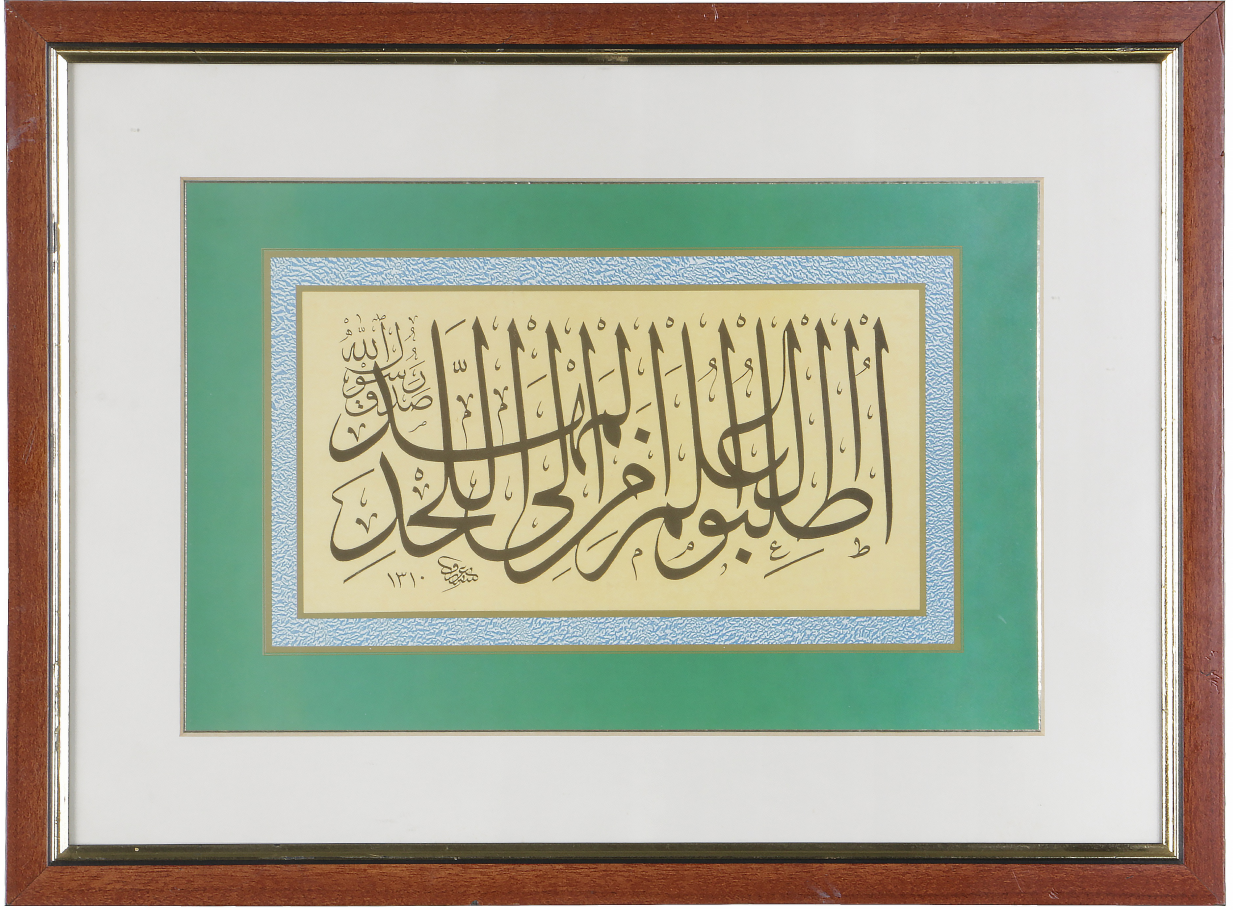 اُطْلُبُوا الْعِلْمَ مِنَ الْمَهْدِ إِلَى اللَّحْدِ
صَدَقَ رَسُولُ اللّٰه
١٣١٠